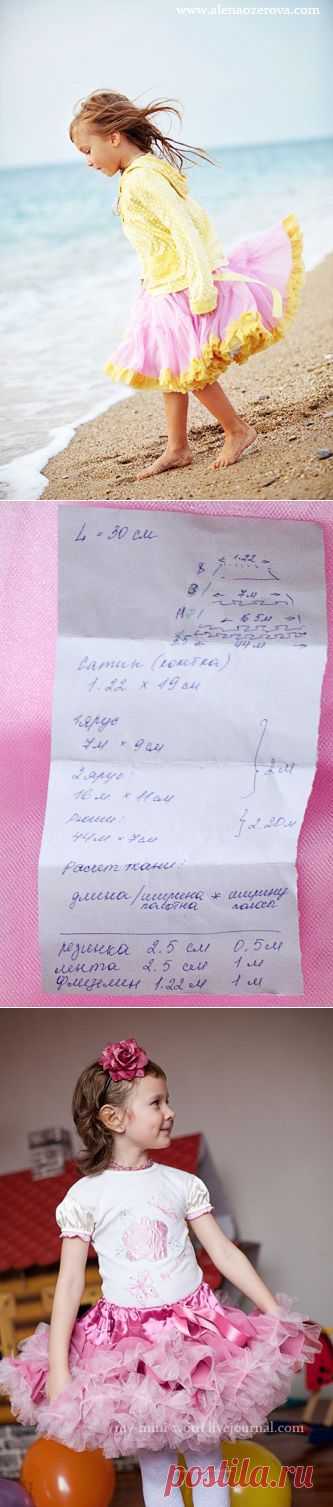 www.alenaozerova.com
L = 30 см
1.22
8
9
7м
11
16.5м
3.5
44м
Сатин (кокетка)
1.22 × 19 см
1 ярус
7м × 9см
2 ярус:
16м × 11см
2м
Рюши:
44м × 7см
2.20м
Расчет ткани:
длина/ширина полотна * ширину полос
резинка 2.5 см 0.5м
лента 2.5 см 1м
Флизелин 1.22м 1м
my-mini-world.livejournal.com
postila.ru